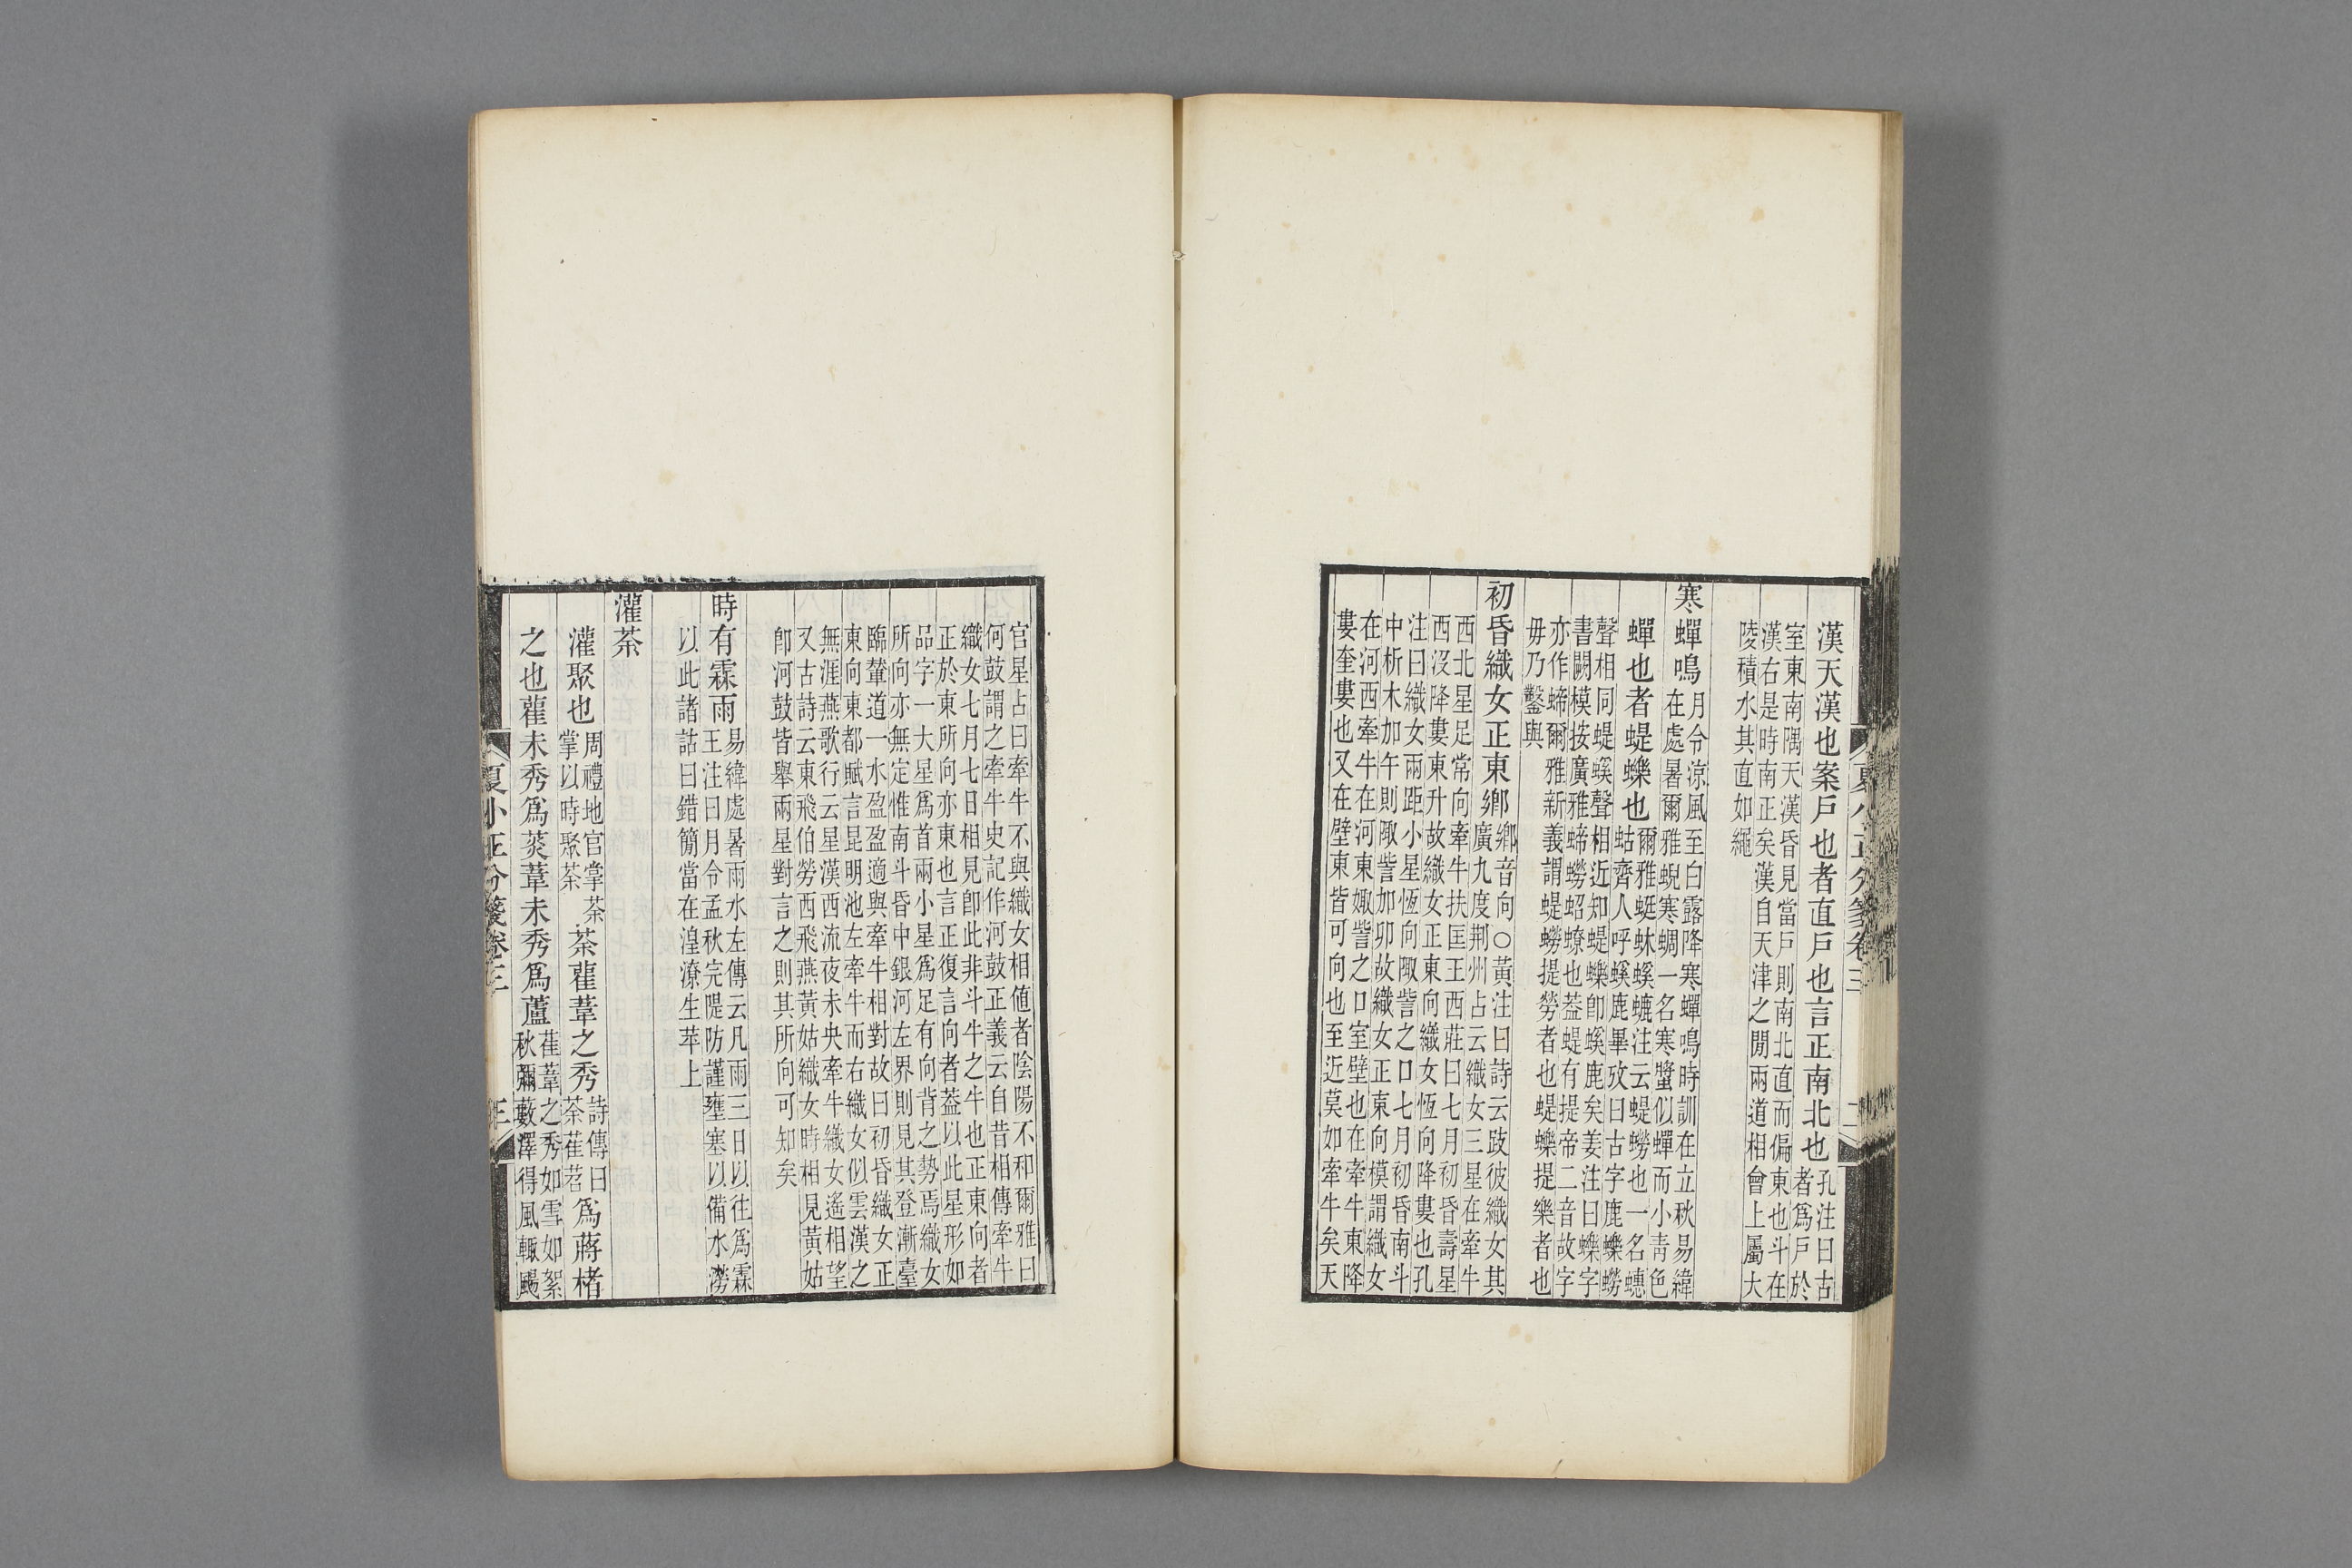 漢天漢也案戶也者直戶也言正南北也孔注曰古者爲戶於
室東南隅天漢昏見當戶則南北直而偏東也斗在
漢右是時南正矣漢自天津之閒兩道相會上屬大
陵積水其直如繩
寒蟬鳴月令涼風至白露降寒蟬鳴時訓在立秋易緯
在處暑爾雅蜺寒蜩一名寒螿似蟬而小靑色
蟬也者蝭蠑也爾雅蜓蚞螇螰注云蝭蟧也一名蟪
蛄齊人呼螇鹿畢攷曰古字鹿蠑蟧
聲相同蝭螇聲相近知蝭蠑卽螇鹿矣姜注曰蠑字
書闕模按廣雅蟧蛁蟟也葢蝭有提帝二音故字
亦作蟧爾雅新義謂蝭蟧提勞者也蝭蠑提樂者也
毋乃鑿與
初昏織女正東鄉鄉音向○黃注曰詩云跂彼織女其
廣九度荆州占云織女三星在牽牛
西北星足常向牽牛扶匡王西莊曰七月初昏壽星
西沒降婁東升故織女正東向織女恆向降婁也孔
注曰織女兩距小星恆向陬訾之口七月初昏南斗
中析木加午則陬訾加卯故織女正東向模謂織女
在河西牽牛在河東娵訾之口室壁也在牽牛東降
婁奎婁也又在壁東皆可向也至近莫如牽牛矣天
夏小正分箋卷三
二
官星占曰牽牛不與織女相値者陰陽不和爾雅曰
何鼓謂之牽牛史記作河鼓正義云自昔相傳牽牛
織女七月七日相見卽此非斗牛之牛也正東向者
正於東所向亦東也言正復言向者葢以此星形如
品字一大星爲首兩小星爲足有向背之勢焉織女
所向亦無定惟南斗昏中銀河左界則見其登漸臺
臨輦道一水盈盈適與牽牛相對故曰初昏織女正
東向東都賦言昆明池左牽牛而右織女似雲漢之
無涯燕歌行云星漢西流夜未央牽牛織女遙相望
又古詩云東飛伯勞西飛燕黃姑織女時相見黃姑
卽河鼓皆舉兩星對言之則其所向可知矣
時有霖雨易緯處暑雨水左傳云凡雨三日以往爲霖
王注曰月令孟秋完隄防謹壅塞以備水潦
以此諸詁曰錯簡當在湟潦生苹上
灌荼
灌聚也周禮地官掌荼
掌以時聚荼荼雚葦之秀詩傳曰
荼萑苕爲蔣楮
之也雚未秀爲菼葦未秀爲蘆萑葦之秀如雪如絮
秋爾藪澤得風輒颺
夏小正分箋卷三
三